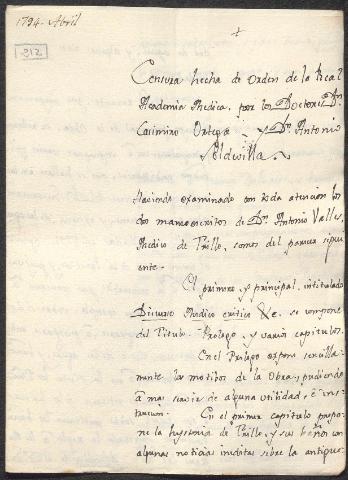 1794 - Abril
212
+
Censura hecha de Orden de la Real
Academia Medica, por los Doctores Dn
Casimiro Ortega y Dn Antonio
Soldevilla
Haviendo examinado con toda atencion los
dos manuescritos de Dn Antonio Valles,
Medico de Trillo, somos del parecer sigui-
ente.
El primero, y principal, intitulado
Discurso Medico critico &c. se compone
del Titulo. Prologo, y varios capitulos.
En el Prologo expone sencilla-
mente los motivos de la Obra, pudiendo
à mas servir de alguna utilidad, è ins-
truccion. En el primer capitulo propo-
ne la hystoria de Trillo, y sus baños con
algunas noticias ineditas sobre la antigue-